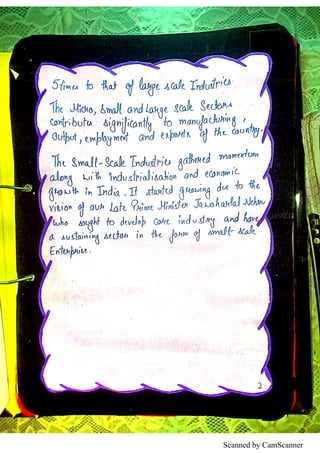 5 times to that of large scale Industries.
The Micro, Small and Large Scale Sectors
contributes significantly to manufacturing,
output, employment and exports of the country.
The Small-Scale Industries gathered momentum
along with industrialisation and economic
growth in India. It started growing due to the
vision of our Late Prime Minister Jawaharlal Nehru
who sought to develop core industry and have
a sustaining sector in the form of small-scale
Enterprise.
2
Scanned by CamScanner